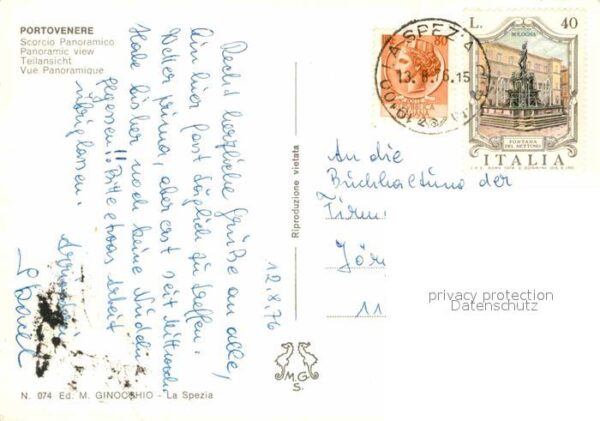 PORTOVENERE
Scorcio Panoramico
Panoramic view
Teilansicht
Vue Panoramique
Recht herzliche Grüße an alle,
bin hier fast täglich zu treffen.
Wetter prima, aber erst seit Mittwoch.
Habe bis her noch keine Nudeln
gegessen!! Bitte etwas Arbeit
übriglassen.
Arrivederci
12.8.76
N. 074 Ed. M. GINOCCHIO - La Spezia
Riproduzione vietata
M.G.
S.
80
LA SPEZIA
13.8.76.15
L. 40
BOLOGNA
FONTANA
DEL NETTUNO
ITALIA
An die
Buchhaltung der
Firm
Jör
11
privacy protection
Datenschutz